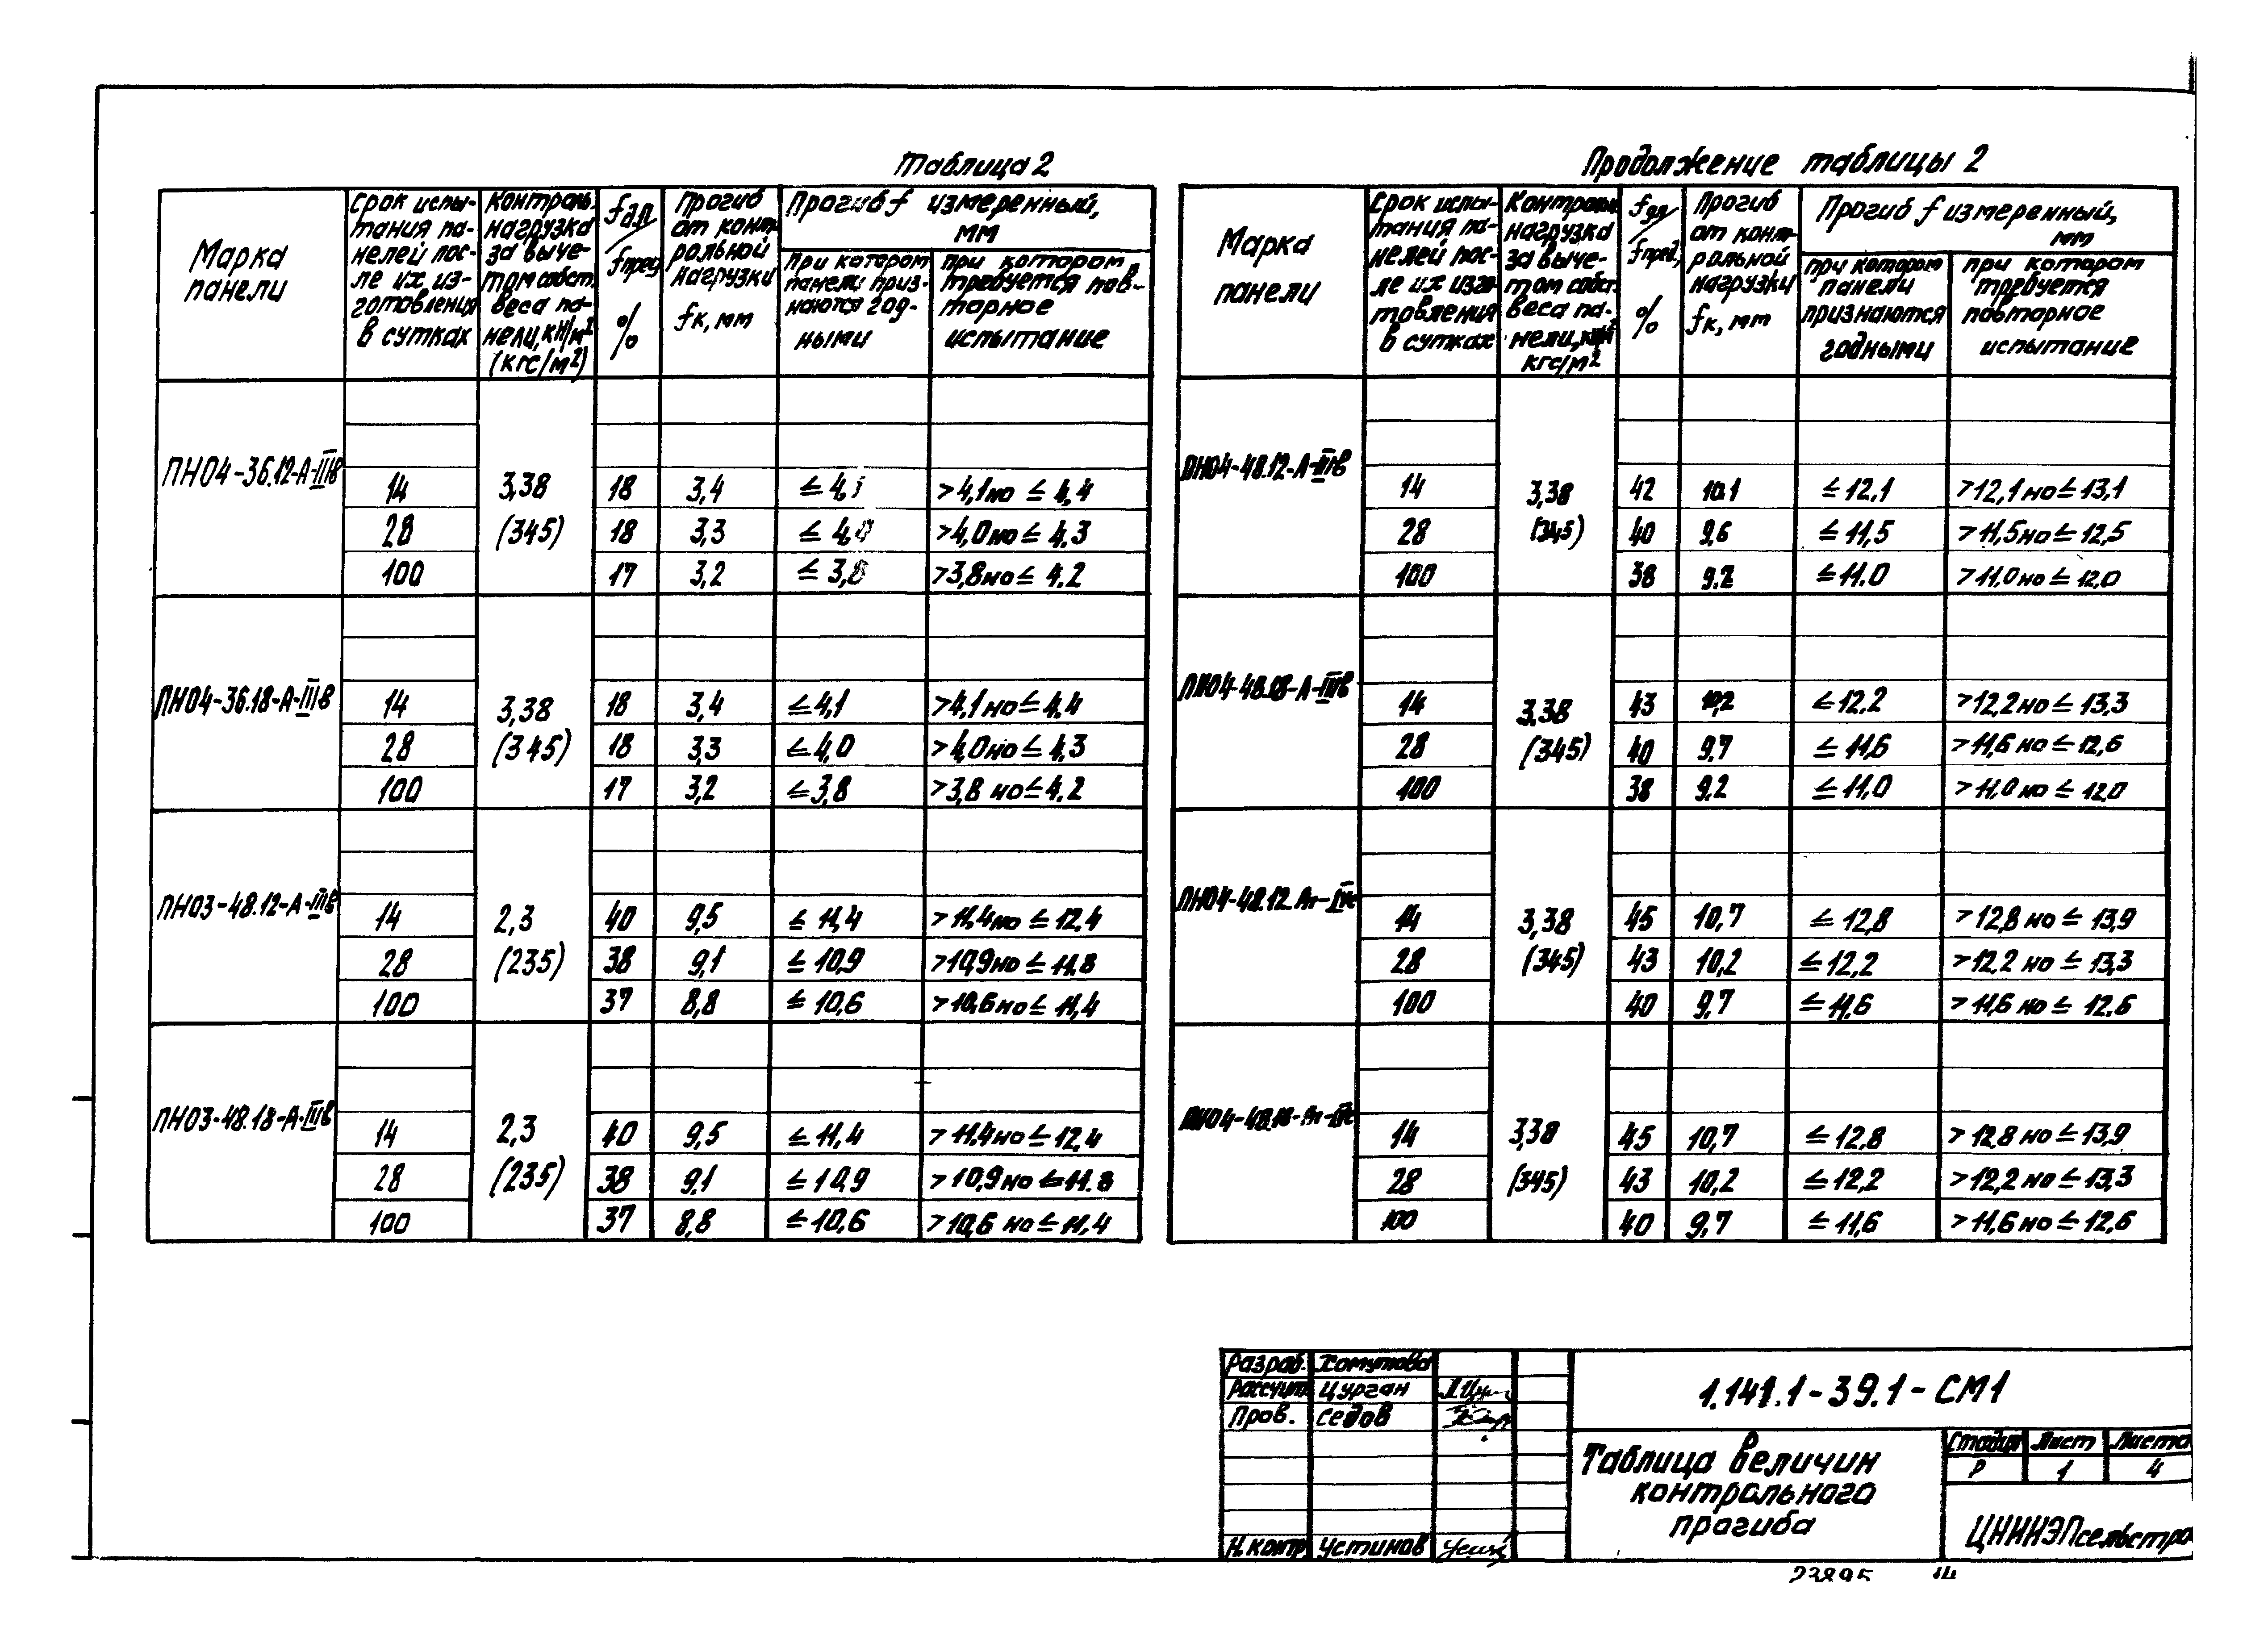 Таблица 2
Марка панели
Срок испы-
тания па-
нелей пос-
ле их из-
готовления
в сутках
Контроль.
нагрузка
за выче-
том собст.
веса па-
нели, кН/м²
(кгс/м²)
fдл/fпред %
Прогиб
от конт-
рольной
нагрузки
fк, мм
Прогиб f измеренный,
мм
При котором
панели приз-
наются год-
ными
при котором
требуется пов-
торное
испытание
ПН04-36.12-А-IIIв 3,38 (345)
14 18 3,4 ≤ 4,1 >4,1 но ≤ 4,4
28 18 3,3 ≤ 4,0 >4,0 но ≤ 4.3
100 17 3,2 ≤ 3,8 >3,8 но ≤ 4.2
ПН04-36.18-А-IIIв 3,38 (345)
14 18 3,4 ≤ 4,1 >4,1 но ≤ 4.4
28 18 3,3 ≤ 4,0 >4,0 но ≤ 4.3
100 17 3,2 ≤ 3,8 >3,8 но ≤ 4.2
ПН03-48.12-А-IIIв 2,3 (235)
14 40 9,5 ≤ 11,4 >11,4 но ≤ 12.4
28 38 9,1 ≤ 10,9 >10,9 но ≤ 11.8
100 37 8,8 ≤ 10,6 >10,6 но ≤ 11,4
ПН03-48.18-А-IIIв 2,3 (235)
14 40 9,5 ≤ 11,4 >11.4 но ≤ 12,4
28 38 9,1 ≤ 10,9 >10,9 но ≤ 11.8
100 37 8,8 ≤ 10,6 >10,6 но ≤ 11,4
Продолжение таблицы 2
Марка
панели
Срок испы-
тания па-
нелей пос-
ле их изго-
товления
в сутках
Контроль.
нагрузка
за выче-
том собст.
веса па-
нели,
кгс/м²
fдл/fпред, %
Прогиб
от конт-
рольной
нагрузки
fк, мм
Прогиб f измеренный,
мм
при котором
панели
признаются
годными
при котором
требуется
повторное
испытание
ПН04-48.12-А-IIIв 3,38 (345)
14 42 10.1 ≤ 12,1 >12,1 но ≤ 13,1
28 40 9,6 ≤ 11,5 >11,5 но ≤ 12,5
100 38 9.2 ≤ 11.0 >11,0 но ≤ 12.0
ПН04-48.18-А-IIIв 3.38 (345)
14 43 10,2 ≤ 12.2 >12,2 но ≤ 13,3
28 40 9,7 ≤ 11,6 >11,6 но ≤ 12,6
100 38 9.2 ≤ 11,0 >11,0 но ≤ 12,0
ПН04-48.12 3,38 (345)
14 45 10,7 ≤ 12,8 >12,8 но ≤ 13,9
28 43 10,2 ≤ 12,2 >12,2 но ≤ 13,3
100 40 9,7 ≤ 11,6 >11,6 но ≤ 12.6
ПН04-48.18 3,38 (345)
14 45 10,7 ≤ 12,8 >12,8 но ≤ 13,9
28 43 10,2 ≤ 12,2 >12,2 но ≤ 13,3
100 40 9,7 ≤ 11,6 >11,6 но ≤ 12,6
Разраб. Хомутова
Рассчит. Цурган
Пров. Седов
Н.контр. Устинов
1.141.1-39.1-СМ1
Таблица величин
контрольного
прогиба
Стадия Лист Листов
Р 1 4
ЦНИИЭПсельстро
23895 14